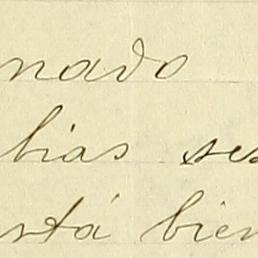 nado
bias se
stá bien